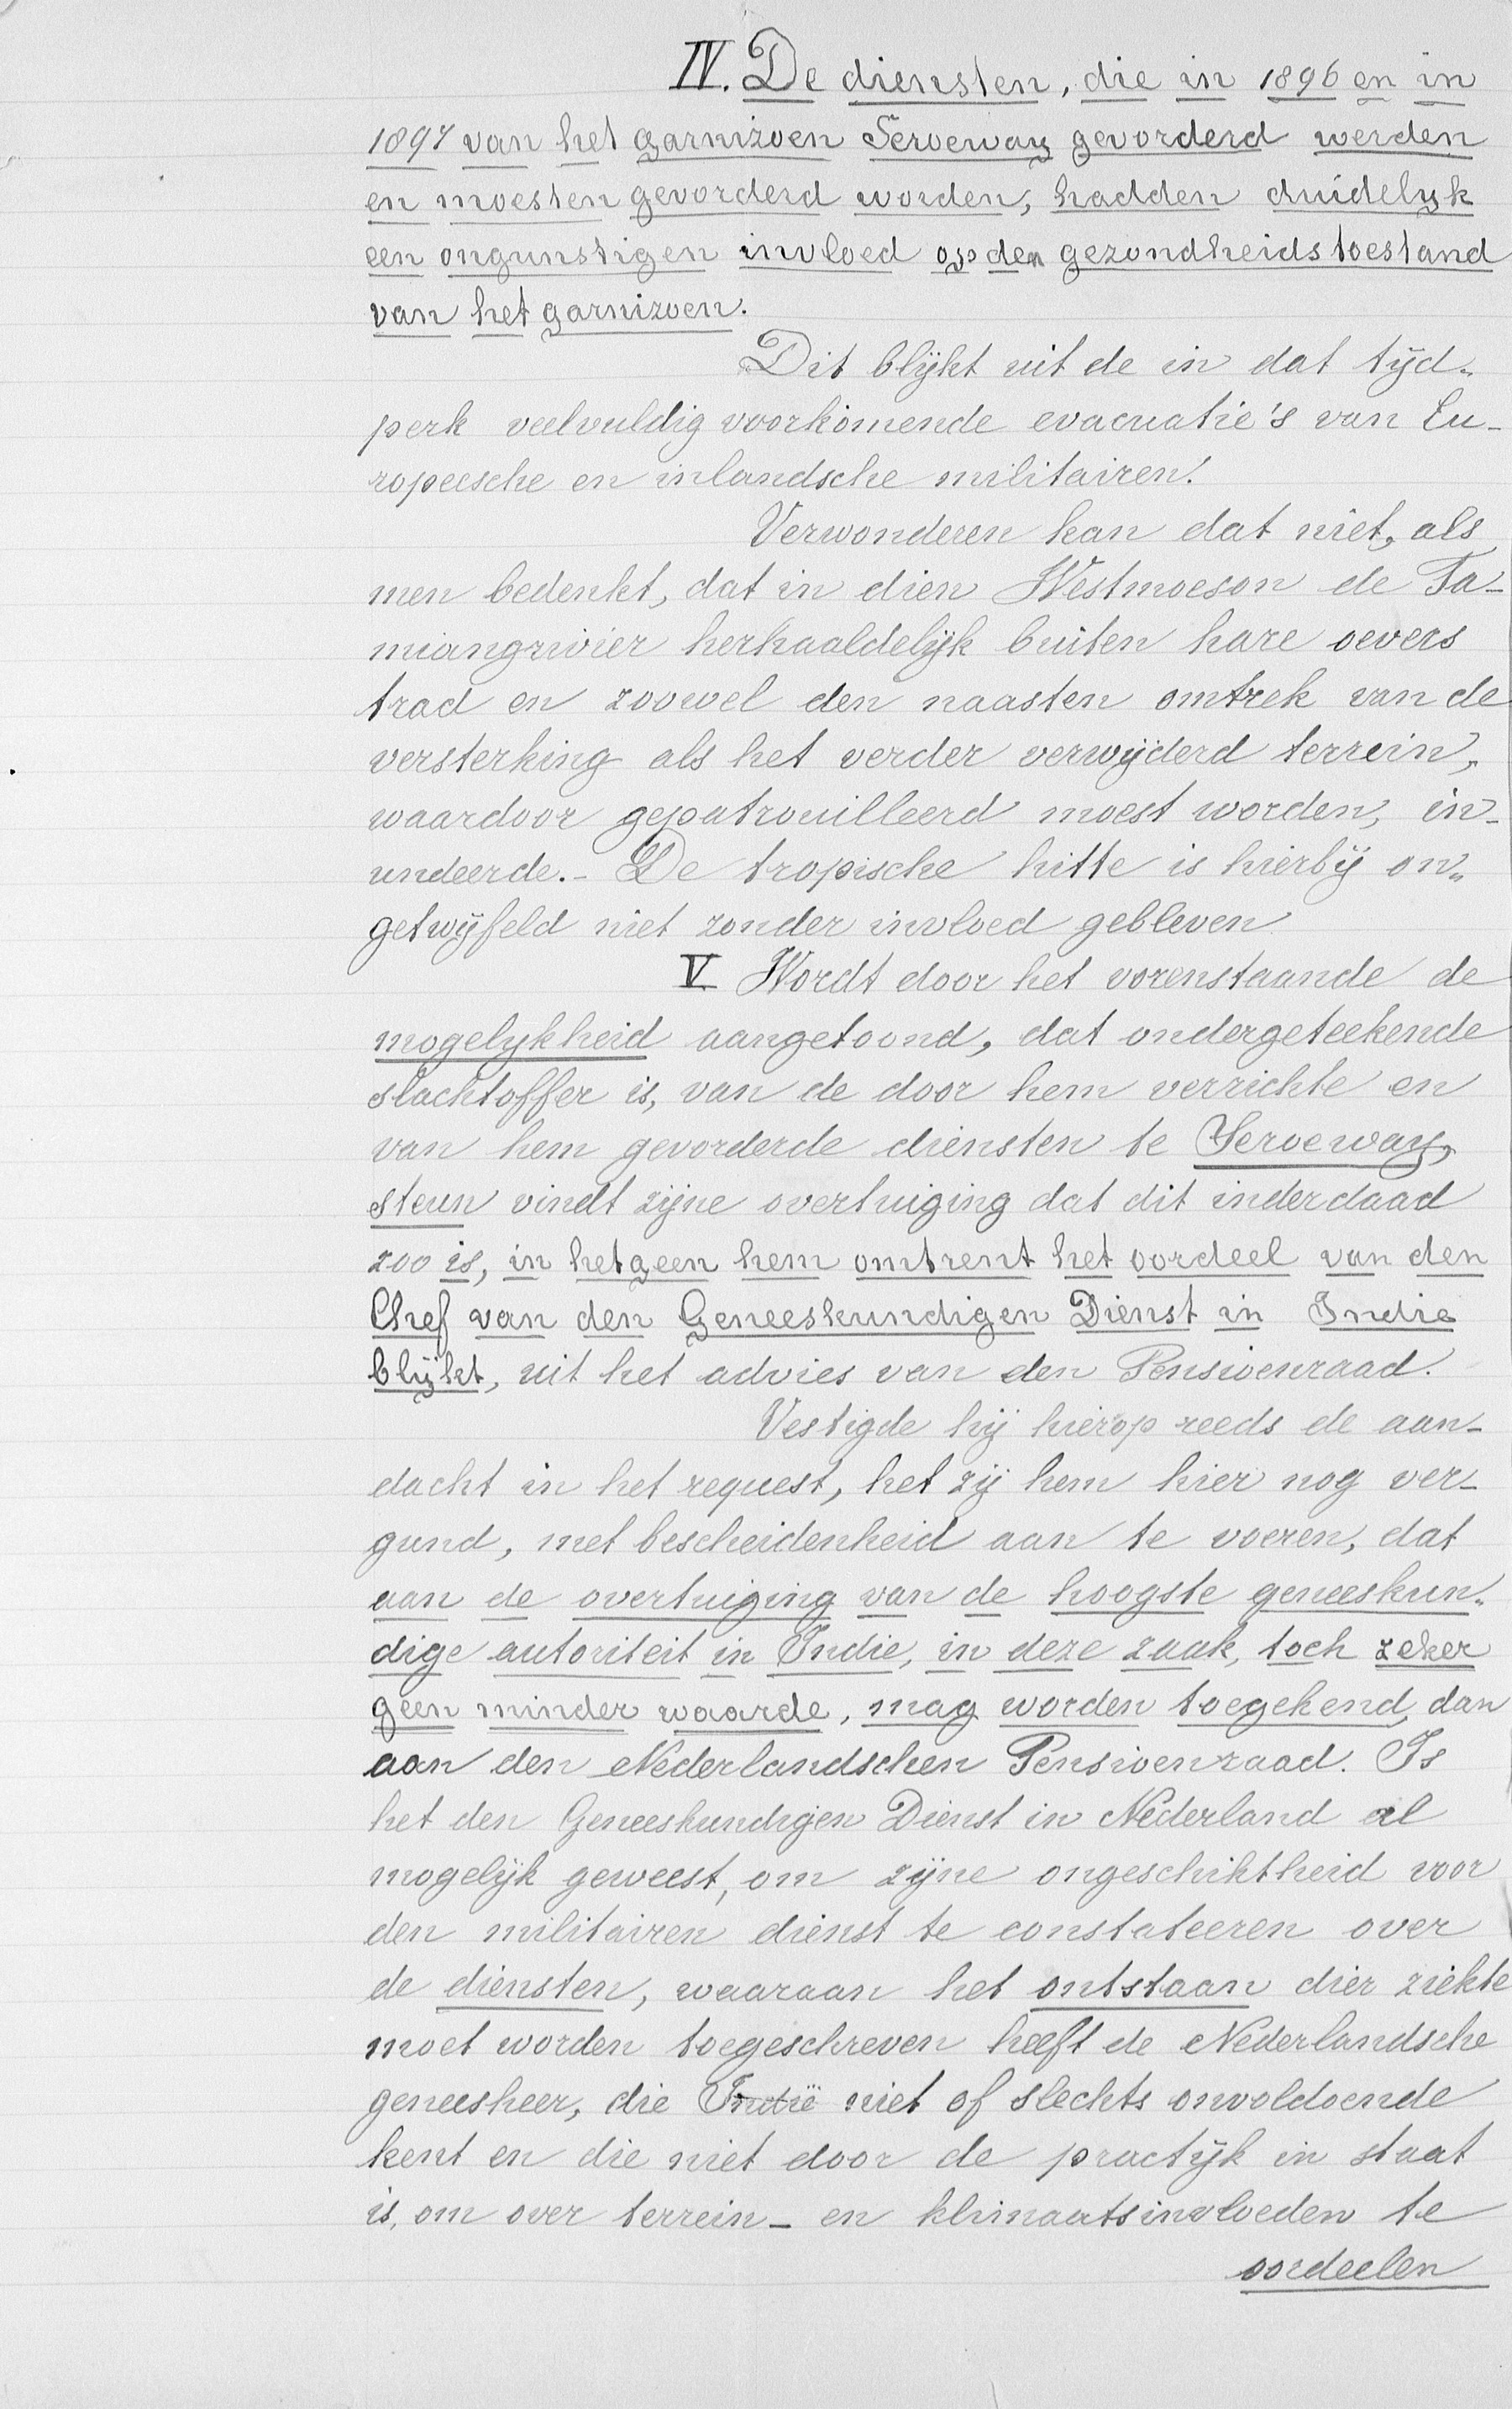 IV. De diensten, die in 1896 en in
1897 van het garnizoen Seroeway gevorderd werden
en moesten gevorderd worden, hadden duidelyk
een ongunstigen invloed op den gezondheidstoestand
van het garnizoen.
Dit blijkt uit de in dat tijd-
perk veelvuldig voorkomende evacuatie's van Eu-
ropeesche en inlandsche militairen.
Verwonderen kan dat niet, als
men bedenkt, dat in dien Westmoeson de Ta-
miangrivier herhaaldelijk buiten hare oevers
trad en zoowel den naasten omtrek van de
versterking als het verder verwijderd terrein,
waardoor gepatrouilleerd moest worden, in-
undeerde. - De tropische hitte is hierbij on-
getwijfeld niet zonder invloed gebleven
V Wordt door het vorenstaande de
mogelykheid aangetoond, dat ondergeteekende
slachtoffer is, van de door hem verrichte en
van hem gevorderde diensten te Seroeway,
steun vindt zijne overtuiging dat dit inderdaad
zoo is, in hetgeen hem omtrent het oordeel van den
Chef van den Geneeskundigen Dienst in Indie
blijkt, uit het advies van den Pensioenraad.
Vestigde hij hierop reeds de aan-
dacht in het request, het zij hem hier nog ver-
gund, met bescheidenheid aan te voeren, dat
aan de overtuiging van de hoogste geneeskun-
dige autoriteit in Indie, in deze zaak, toch zeker
geen minder waarde, mag worden toegekend, dan
aan den Nederlandschen Pensioenraad. Is
het den Geneeskundigen Dienst in Nederland al
mogelijk geweest, om zijne ongeschiktheid voor
den militairen dienst te constateeren over
de diensten, waaraan het ontstaan dier ziekte
moet worden toegeschreven heeft de Nederlandsche
geneesheer, die Indië niet of slechts onvoldoende
kent en die niet door de practijk in staat
is, om over terrein- en klimaatsinvloeden te
oordeelen